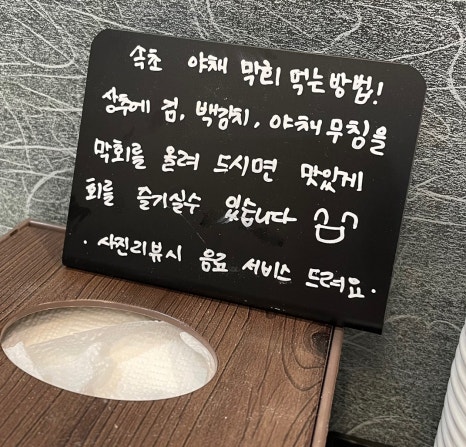 속초 야채 막회 먹는방법!
상추에 김, 백김치, 야채무침을
막회를 올려 드시면 맛있게
회를 즐기실수 있습니다
. 사진리뷰시 음료 서비스 드려요.